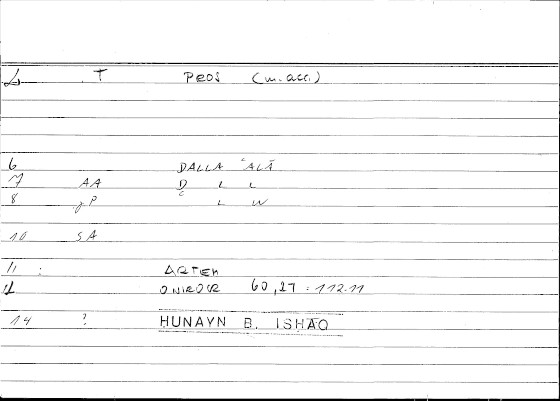 T PROS (m. acc.)
6 DALLA ʿALĀ
7 AA D L L
8 P L W
10 SA
11 : ARTEM
12 ONIROCR 60,27 : 112.11
14 ? HUNAYN B. ISHĀQ